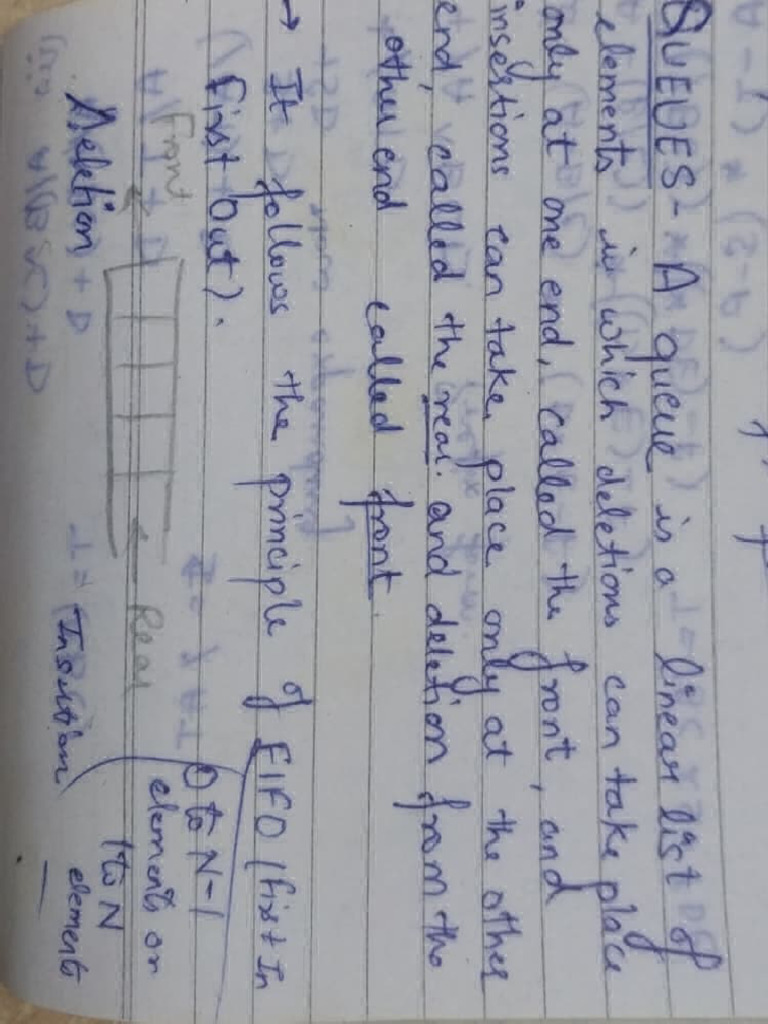 QUEUES - A queue is a linear list of
elements in which deletions can take place
only at one end, called the front, and
insertions can take place only at the other
end, called the rear. and deletion from the
other end called front.
→ It follows the principle of FIFO (first In
first Out).
0 to N-1
elements or
1 to N
elements
Front
Rear
Deletion
Insertion